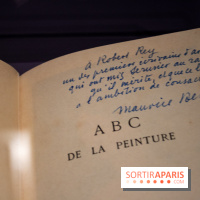 A Robert Rey
un des premiers écrivains à
qui ont mis Sérusier au
qu'il mérite,
l'ambition de
Maurice
A B C
DE LA PEINTURE
SORTIRAPARIS
.com